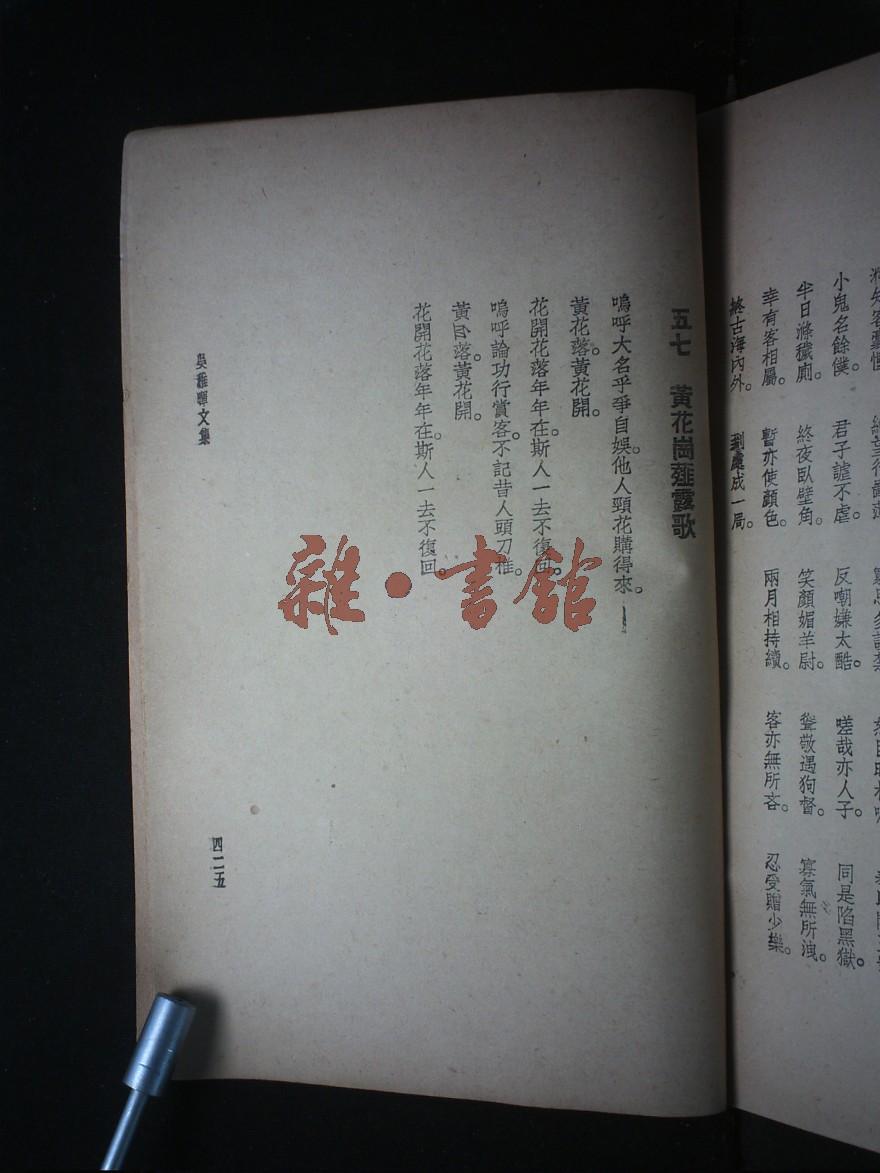 小鬼名餘僕。君子謔不虐。反嘲嫌太酷。嗟哉亦人子。同是陷黑獄。
半日滌穢廁。終夜臥壁角。笑顏媚羊尉。聳敬遇狗督。寡氣無所洩。
幸有客相屬。暫亦使顏色。兩月相持續。客亦無所吝。忍受贈少樂。
終古海內外。到處成一局。
五七　黃花崗薤露歌
嗚呼大名乎爭自娛。他人頸花購得來。
黃花落。黃花開。
花開花落年年在。斯人一去不復回。
嗚呼論功行賞客。不記昔人頭刀椎。
黃落。黃花開。
花開花落年年在。斯人一去不復回。
吳稚暉文集
四二五
雜·書館